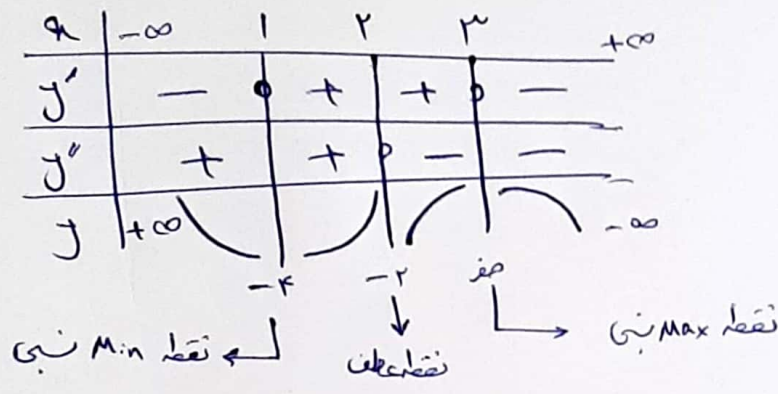 x -∞ ۱ ۲ ۳ +∞
y′ - + + -
y″ + + - -
y +∞ -∞
-۴ -۲ صفر
نقطه Min نسبی نقطه عطف نقطه Max نسبی